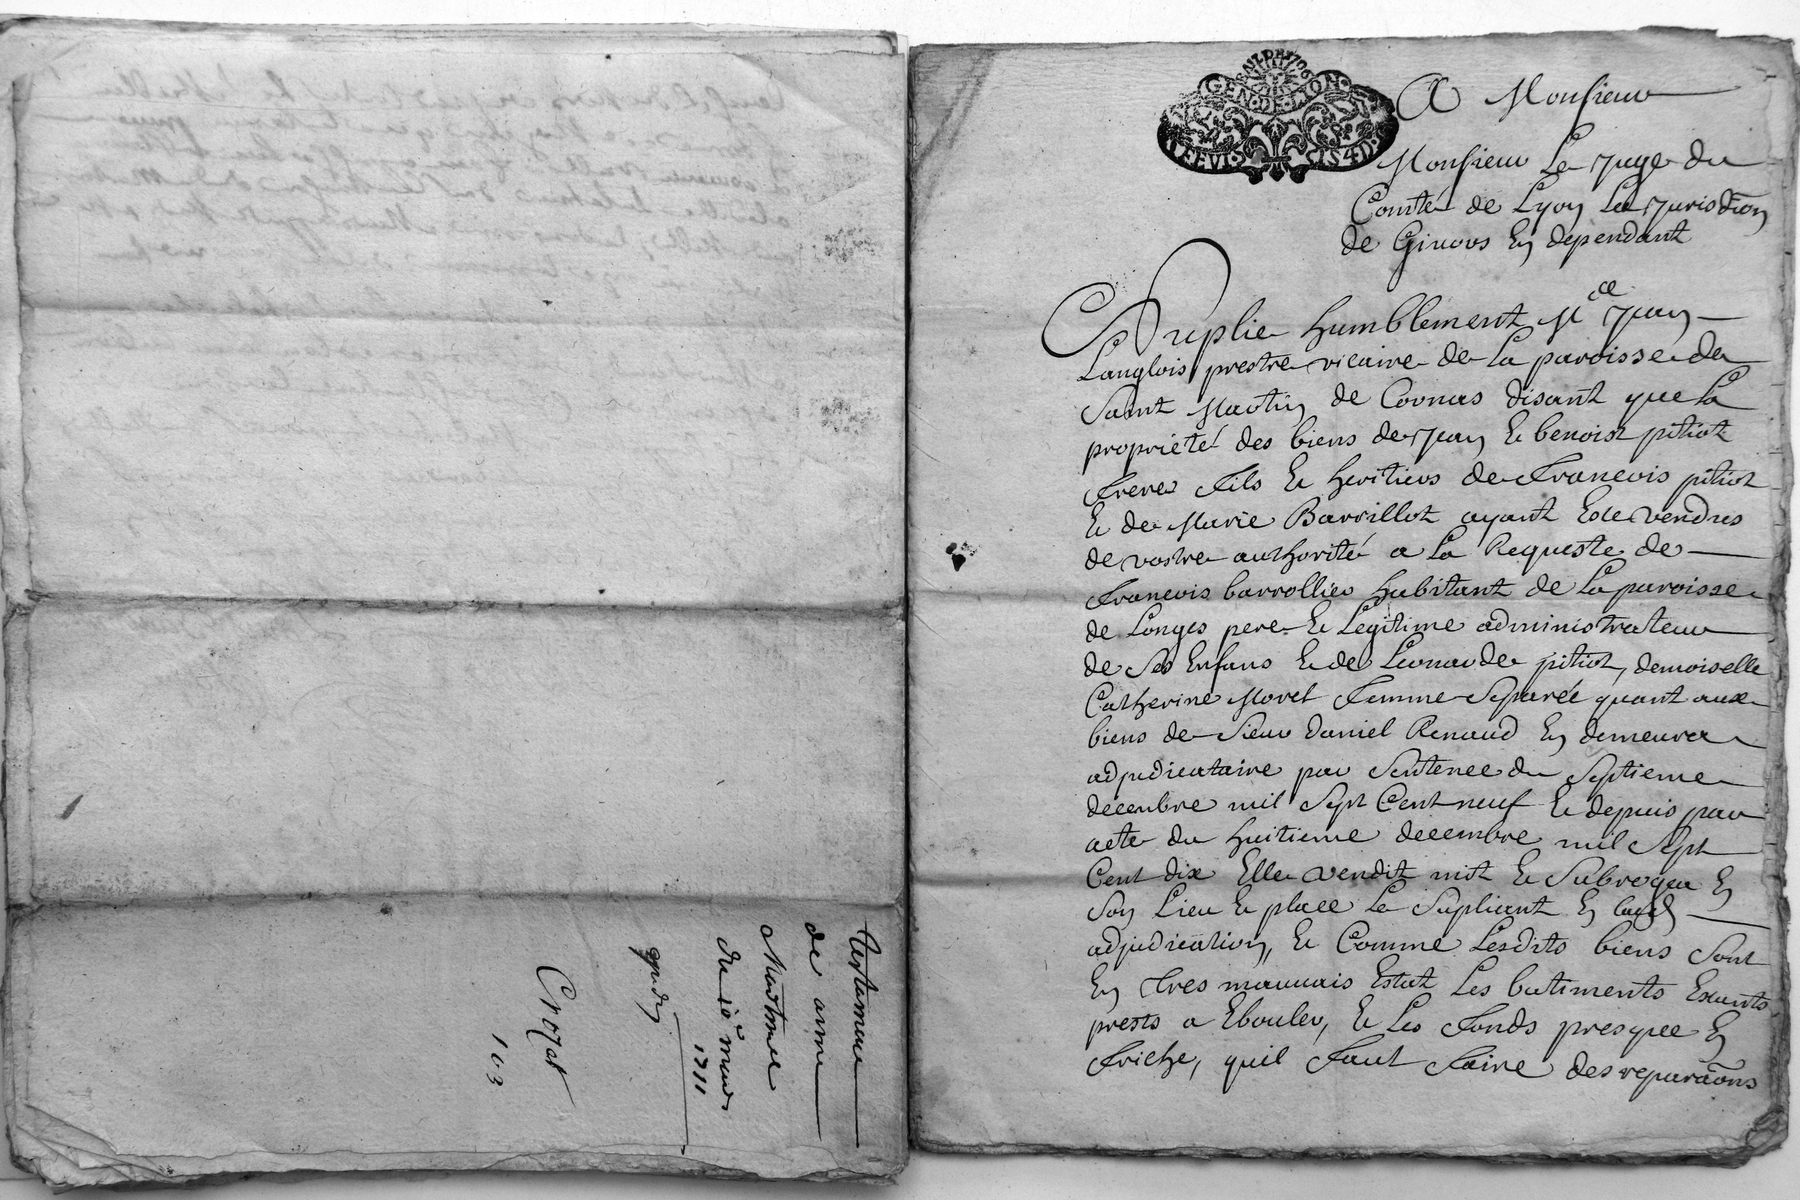 Testament
de anne
du 10e mars
1711
Crozat
103
GEN·DE·LION
A Monsieur
Monsieur Le Juge du
Comté de Lyon La Jurisd̄ion
de Givors En dependant
Suplie humblement Mre Jean
Langlois prestre vicaire de La paroisse de
Saint Martin de Cornas disant que La
proprieté des biens de Jean & benoist pitiot
frere fils & heritiers de francois pitiot
& de Marie Barrillot ayant Esté vendus
de vostre authorité a La Requeste de
francois barrollier habitant de La paroisse
de Longes pere & Legitime administrateur
de Ses Enfans & de Leonarde pitiot, demoiselle
Catherine Morel femme Separée quant aux
biens de Sieur Daniel Renaud En demeura
adjudicataire par Sentence du Septieme
decembre mil Sept Cent neuf & depuis par
acte du huitieme decembre mil Sept
Cent dix Elle vendit mit & Subrogea En
Son Lieu & place Le Supliant En
adjudication, & Comme Lesdits biens Sont
En tres mauvais Estat Les batiments Estants
prests a Ebouler, & Les fonds presque En
friche, quil faut faire des reparāons